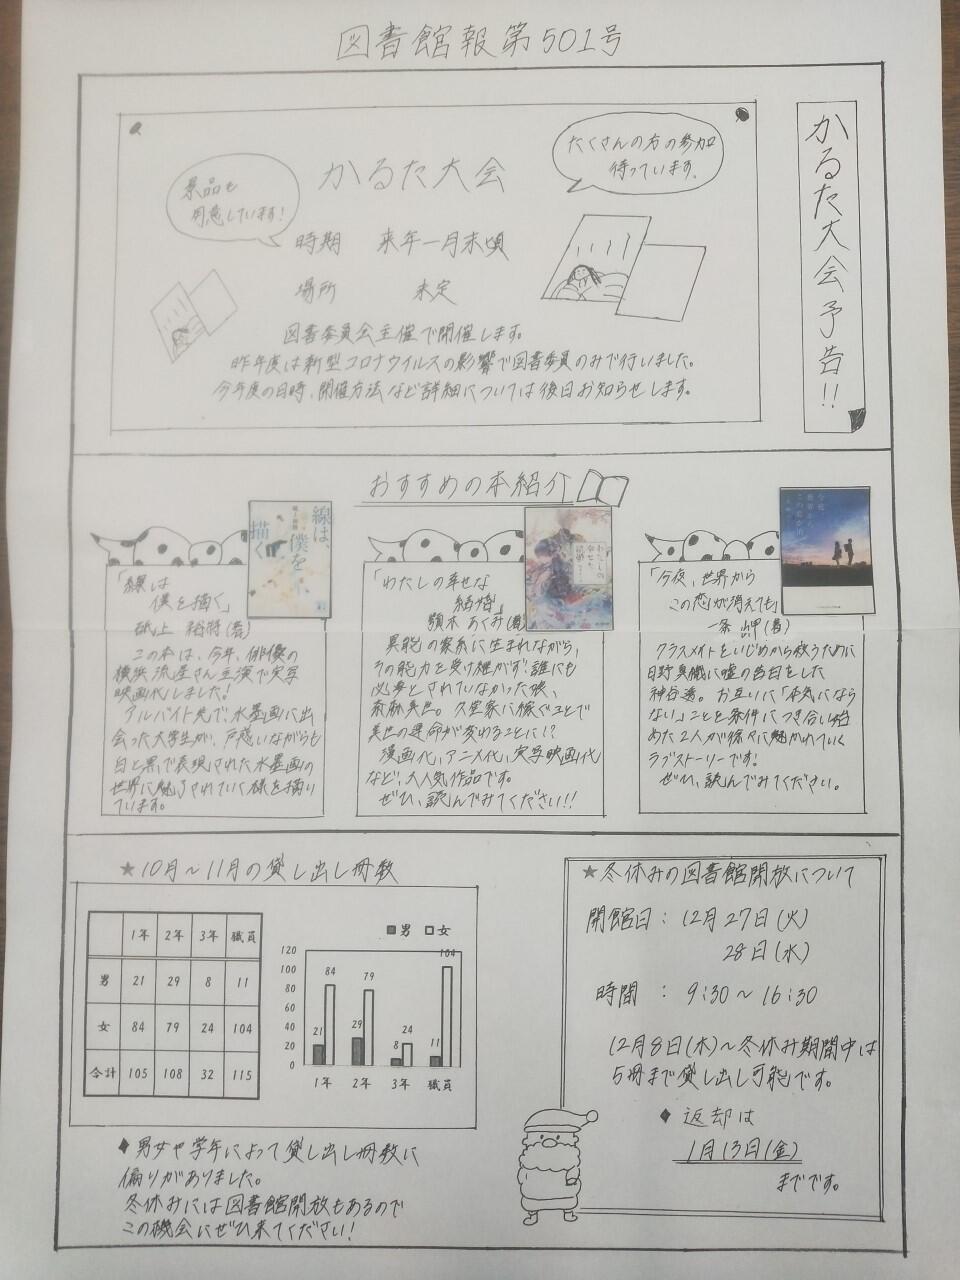 図書館報第501号
かるた大会予告!!
景品も
用意しています!
かるた大会
たくさんの方の参加
待っています。
時期 来年一月末頃
場所 未定
図書委員会主催で開催します。
昨年度は新型コロナウイルスの影響で図書委員のみで行いました。
今年度の日時、開催方法など詳細については後日お知らせします。
おすすめの本紹介
線は、
僕を
描く
「線は
僕を描く」
砥上 裕將(著)
この本は、今年、俳優の
横浜 流星さん主演で実写
映画化しました!
アルバイト先で、水墨画に出
会った大学生が、戸惑いながらも
白と黒で表現された水墨画の
世界に魅了されていく様を描い
ています。
わたしの
幸せな
結婚
「わたしの幸せな
結婚」
顎木 あくみ(著)
異能の家系に生まれながら、
その能力を受け継がず、誰にも
必要とされていなかった娘、
斎森美世。久堂家に嫁ぐことで
美世の運命が変わることに!?
漫画化、アニメ化、実写映画化
など、大人気作品です。
ぜひ、読んでみてください!!
今夜、
世界から
この恋が消
「今夜、世界から
この恋が消えても」
一条 岬(著)
クラスメイトをいじめから救うために
日野真織に嘘の告白をした
神谷透。お互いに「本気になら
ない」ことを条件につき合い始
めた2人が徐々に魅かれていく
ラブストーリーです!
ぜひ、読んでみてください。
★10月～11月の貸し出し冊数
1年 2年 3年 職員
男 21 29 8 11
女 84 79 24 104
合計 105 108 32 115
男 女
120
100
80
60
40
20
0
21 84 29 79 8 24 11 104
1年 2年 3年 職員
♦男女や学年によって貸し出し冊数に
偏りがありました。
冬休みには図書館開放もあるので
この機会にぜひ来てください!
★冬休みの図書館開放について
開館日: 12月27日(火)
28日(水)
時間 : 9:30～16:30
12月8日(木)～冬休み期間中は
5冊まで貸し出し可能です。
♦返却は
1月13日(金)
までです。